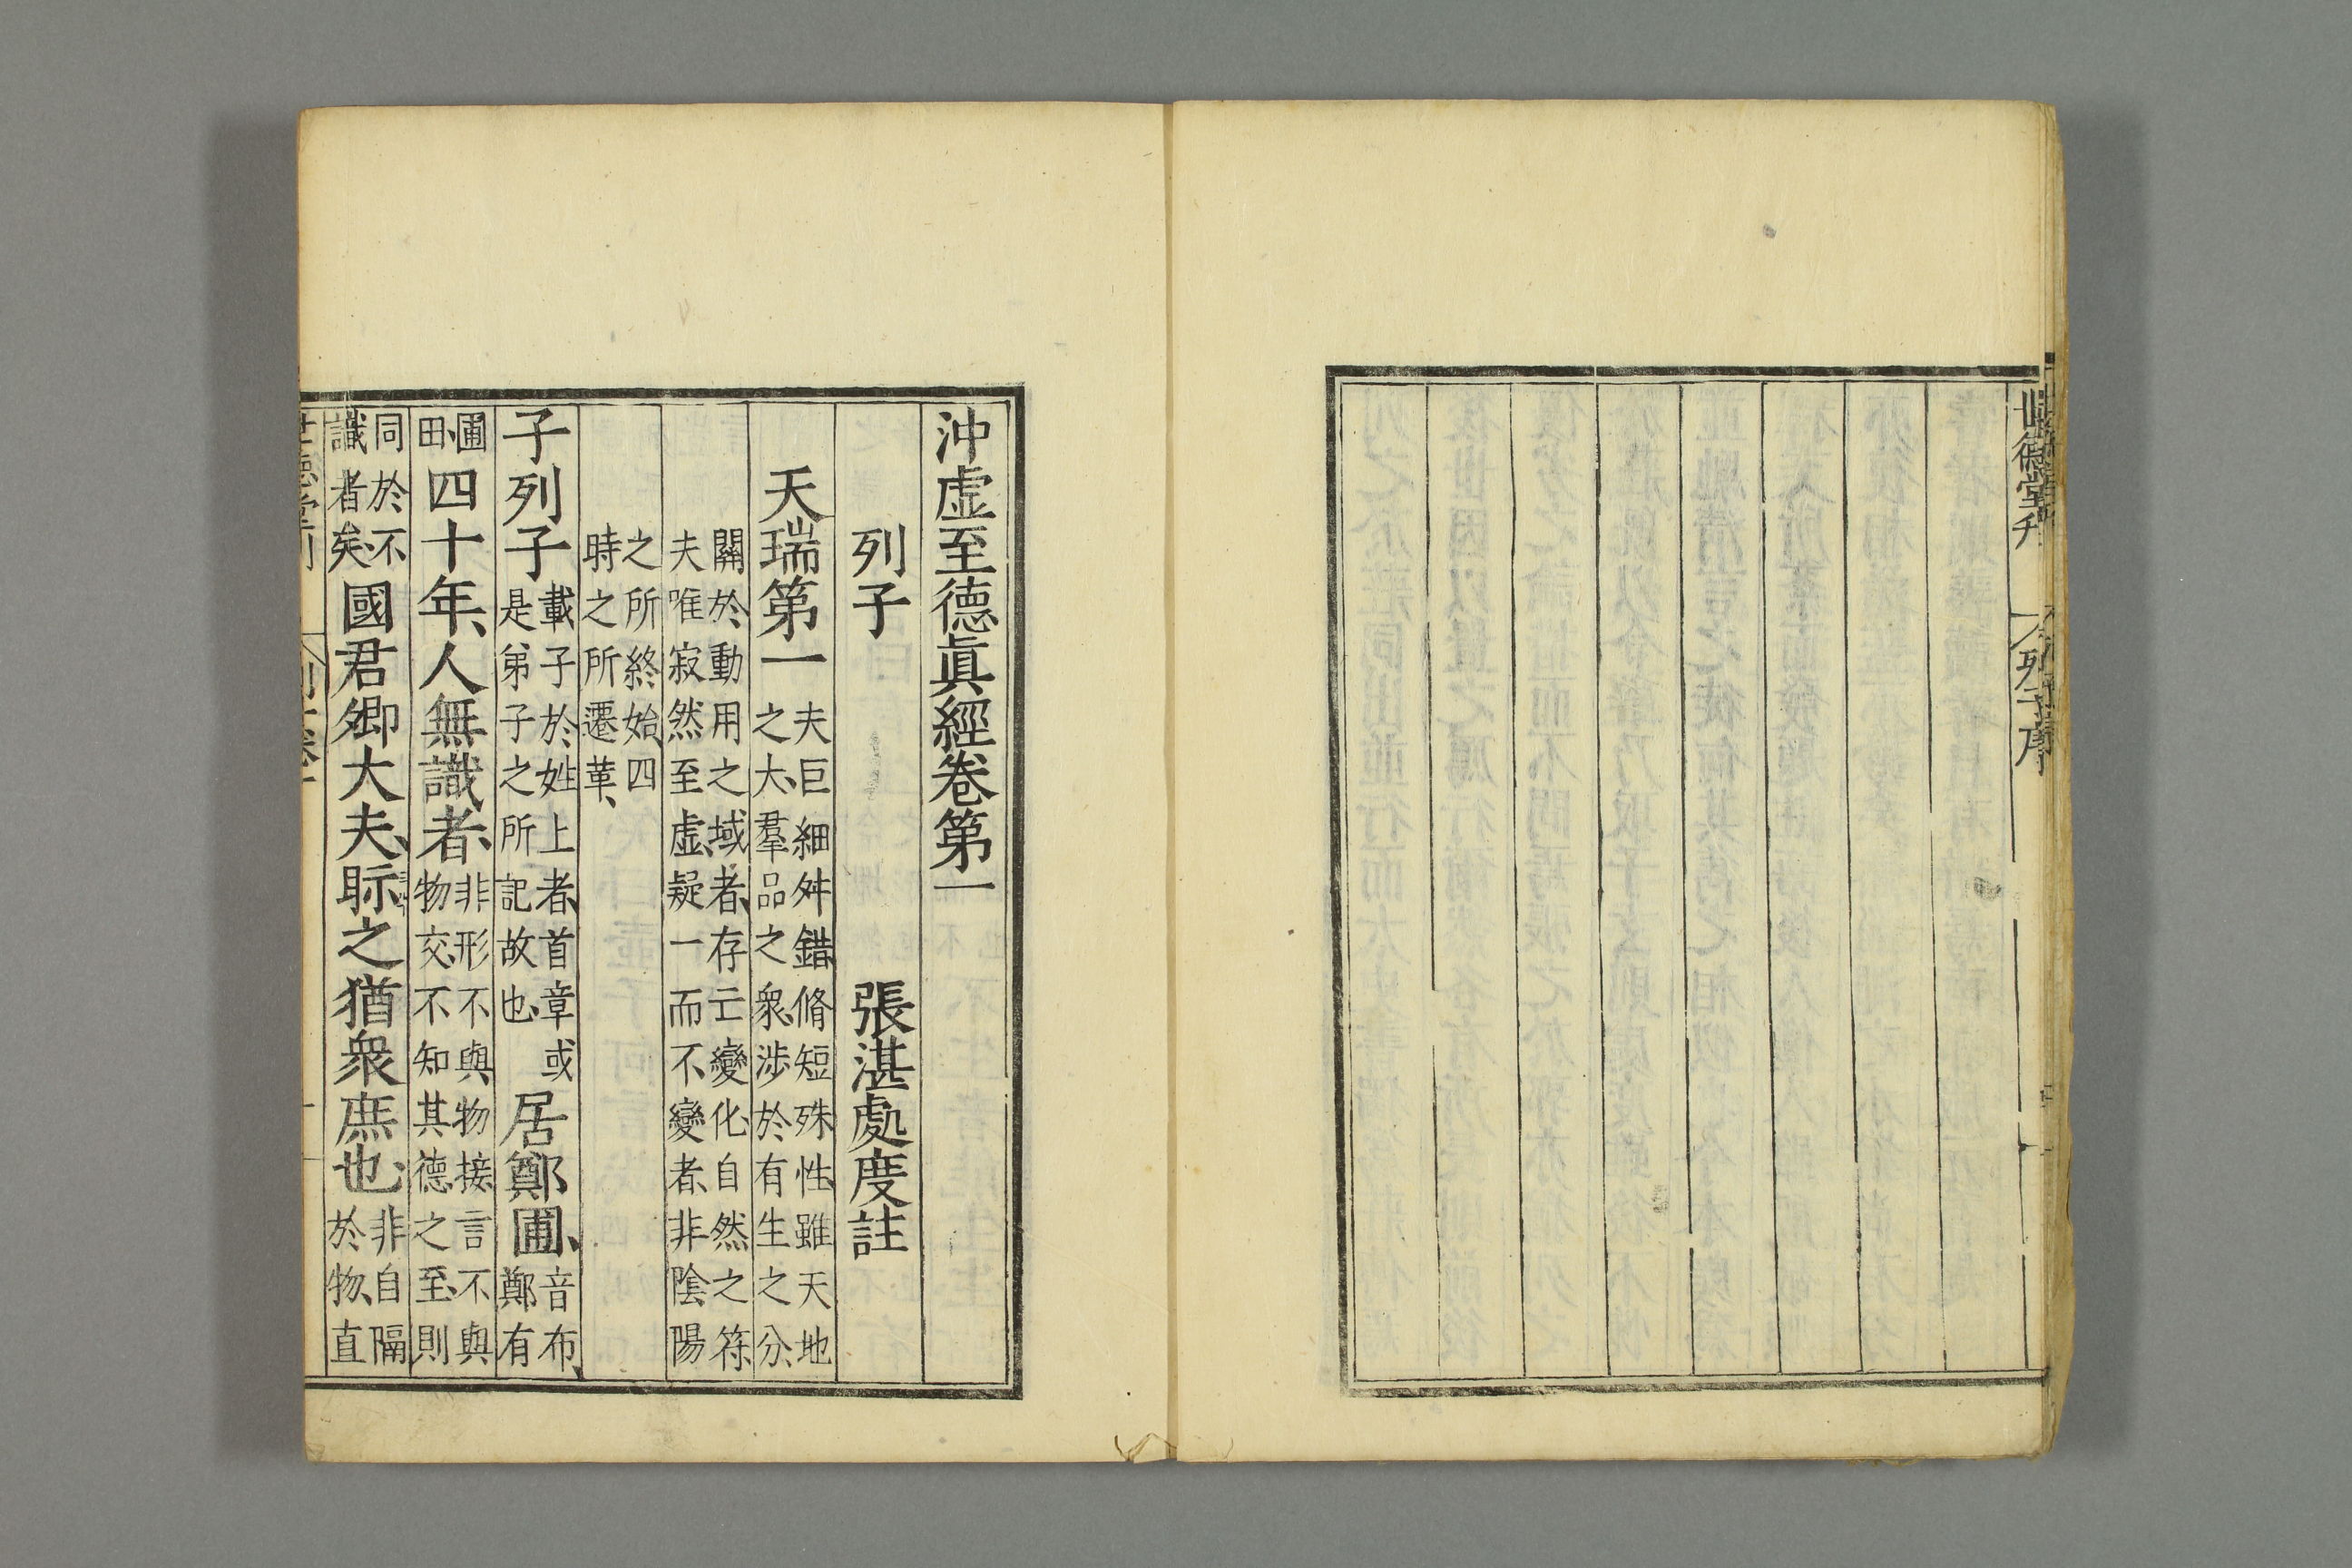 世德堂刊 列子序
沖虛至德眞經卷第一
列子 張湛處度註
天瑞第一 夫巨細舛錯、脩短殊性、雖天地
之大、羣品之衆、涉於有生之分、
關於動用之域者、存亡變化、自然之符、
夫唯寂然至虛凝一而不變者、非陰陽
之所終始、四
時之所遷革、
子列子 載子於姓上者、首章或
是弟子之所記故也、
居鄭圃、 音布、
鄭有
圃
田、
四十年、人無識者、 非形不與物接、言不與
物交、不知其德之至、則
同於不
識者矣、
國君卿大夫、眎之猶衆庶也、 非自隔
於物、直